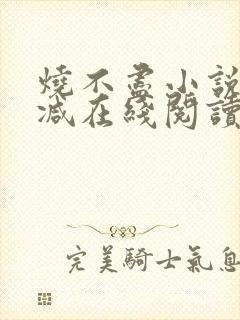 燒不盡小說
減在綫閱讀
完美騎士氣息